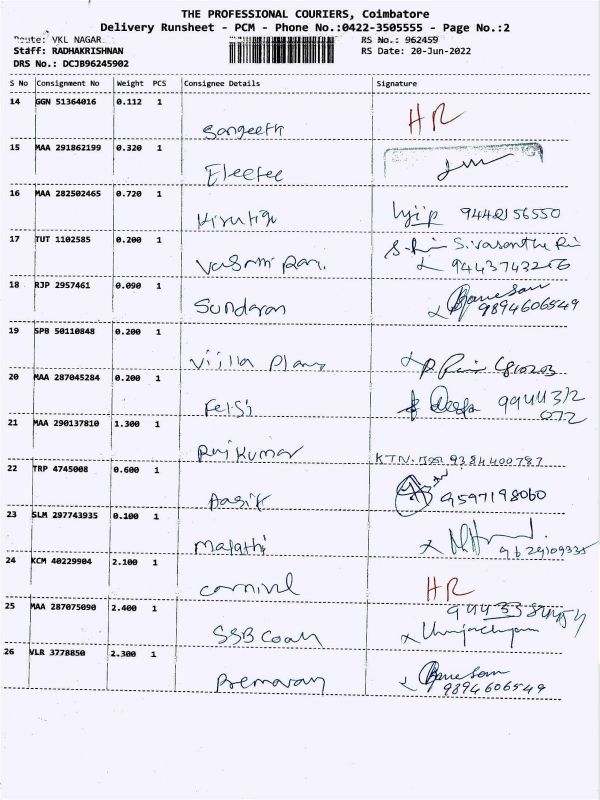 THE PROFESSIONAL COURIERS, Coimbatore
Delivery Runsheet - PCM - Phone No.:0422-3505555 - Page No.:2
Route: VKL NAGAR
RS No.: 962459
Staff: RADHAKRISHNAN
RS Date: 20-Jun-2022
DRS No.: DCJB96245902
S No Consignment No Weight PCS Consignee Details Signature
14 GGN 51364016 0.112 1
Sangeeth HR
15 MAA 291862199 0.320 1
16 MAA 282502465 0.720 1
Kiruthi
17 TUT 1102585 0.200 1
S.Vasantha
9443743256
18 RJP 2957461 0.090 1
Sundaran 9894606549
19 SPB 50110848 0.200 1
20 MAA 287045284 0.200 1
Felsi Deepa 9944312
072
21 MAA 290137810 1.300 1
Rajkumar KTN. 9384400787
22 TRP 4745008 0.600 1
Aasik 9597198060
23 SLM 297743935 0.100 1
Malathi 9629109335
24 KCM 40229904 2.100 1
HR
25 MAA 287075090 2.400 1
SSB
26 VLR 3778850 2.300 1
9894606549